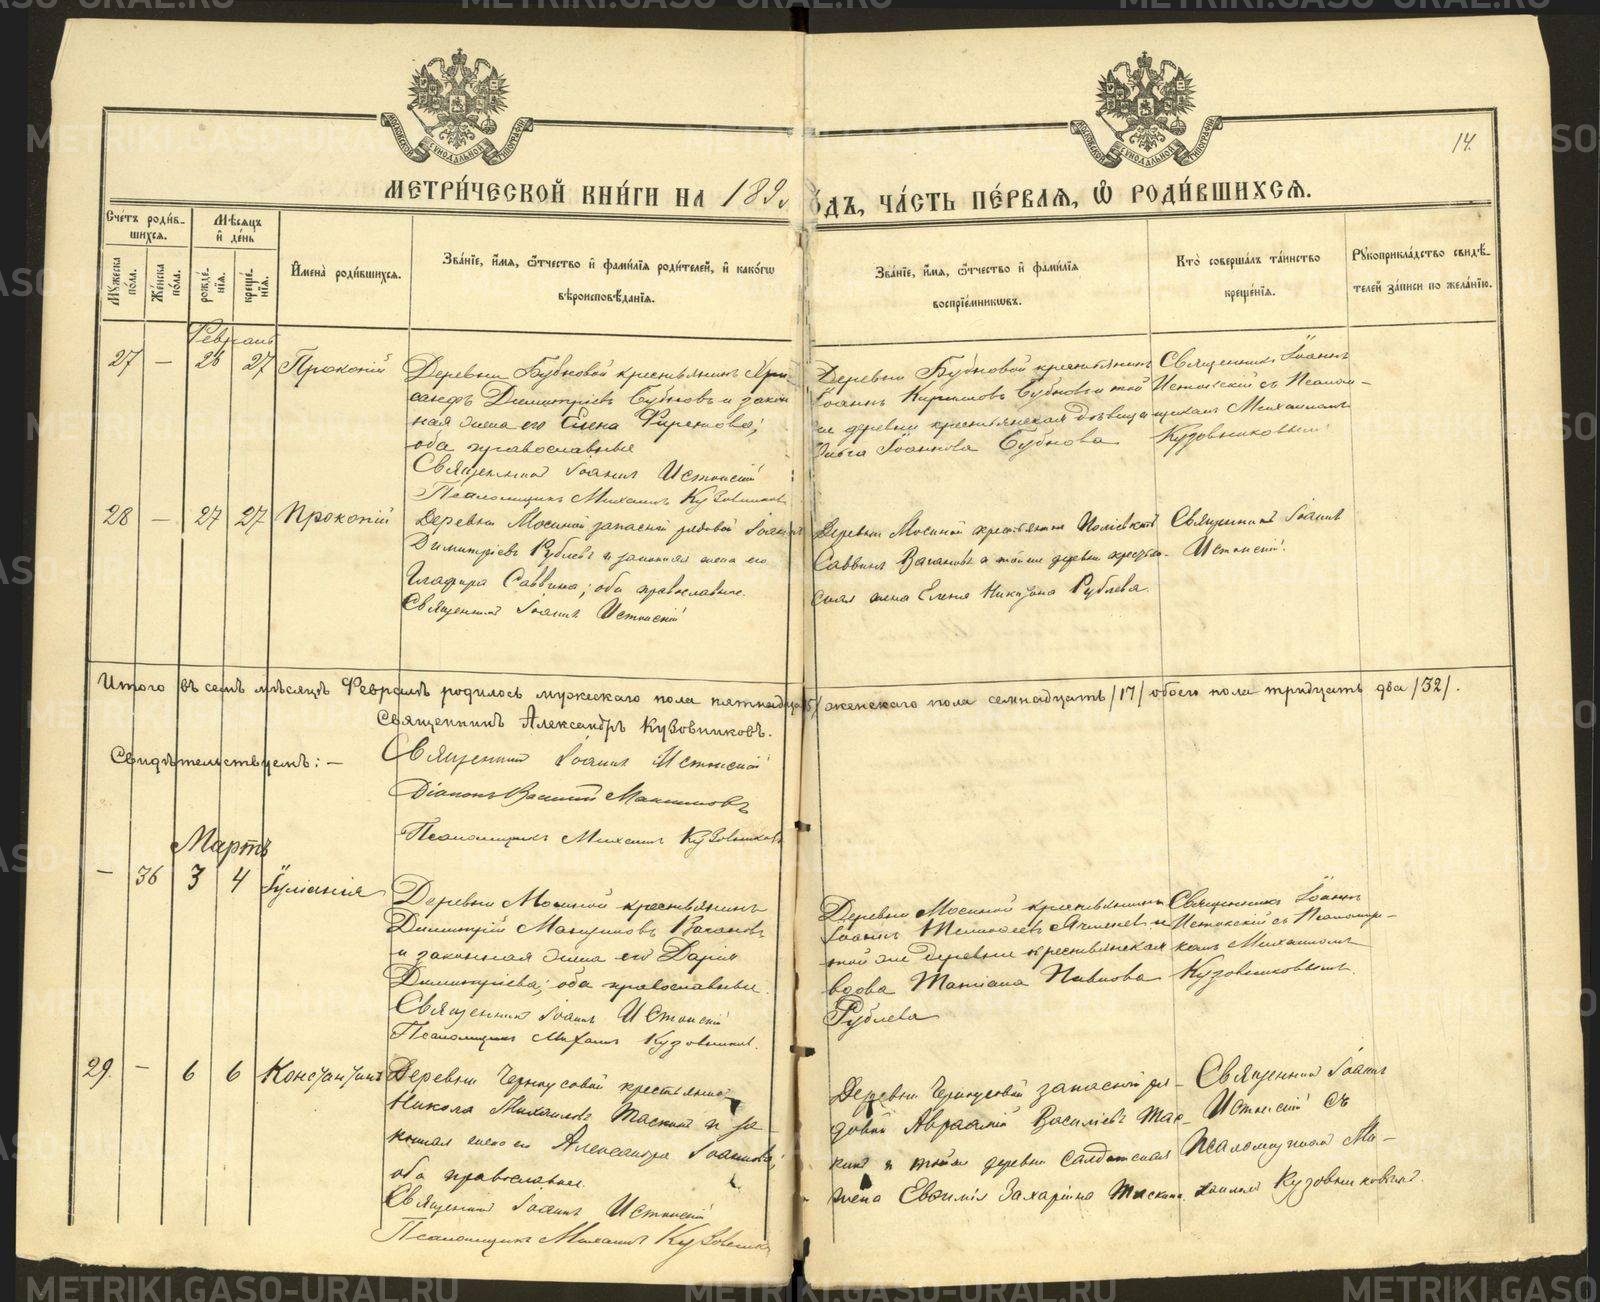 14.
МЕТРИ́ЧЕСКОЙ КНИ́ГИ НА 189
ОДЪ, ЧА́СТЬ ПЕ́РВАЯ, Ѿ РОДИ́ВШИХСЯ.
Сче́тъ роди́в-
шихся.
Мѣсяцъ
и҆ де́нь
Мꙋжеска
по́ла.
Же́нска
по́ла.
рожде́-
нїя.
креще́-
нїя.
И҆мена̀ роди́вшихся.
Зва́нїе, и҆́мя, ѻ҆́тчество и҆ фами́лїя роди́телей, и҆ како́гѡ
вѣроисповѣ́данїя.
Зва́нїе, и҆́мя, ѻ҆́тчество и҆ фами́лїя
воспрїе́мникѡвъ.
Кто̀ соверша́лъ та́инство
креще́нїя.
Рꙋкоприкла́дство свидѣ́-
телей за́писи по жела́нїю.
Февраль
27 — 26 27 Прокопій
Деревни Бубновой крестьянинъ Хри-
санфъ Димитріевъ Бубновъ и закон
ная жена его Елена
оба православные
Священникъ Іоаннъ Истокскій
Псаломщикъ Михаилъ Кузовников
Деревни Бубновой крестьянинъ
Іоаннъ Кириловъ Бубновъ и той
же деревни крестьянская дѣвица
Ольга Іоаннова Бубнова
Священникъ Іоаннъ
Истокскій съ Псалом-
щикомъ Михаиломъ
Кузовниковымъ.
28 — 27 27 Прокопій
Деревни Мосиной запасный рядовой Іоаннъ
Димитріевъ Рублевъ и законная жена его
Глафира Саввина; оба православные.
Священникъ Іоаннъ Истокскій
Деревни Мосиной крестьянинъ Поліевктъ
Саввинъ Вагановъ и той же деревни крестьян-
ская жена Елена Рублева.
Священникъ Іоаннъ
Истокскій.
Итого въ семъ мѣсяцѣ Февралѣ родилось мужескаго пола пятнадца 15/ женскаго пола семнадцать /17/ обоего пола тридцать два /32/.
Священникъ Александръ Кузовниковъ.
Свидѣтельствуемъ: —
Священникъ Іоаннъ Истокскій
Діаконъ Василій Максимовъ
Псаломщикъ Михаилъ Кузовников
Мартъ
— 36 3 4 Іуліанія
Деревни Мосиной крестьянинъ
Димитрій Вагановъ
и законная жена его Дарія
Димитріева; оба православные.
Священникъ Іоаннъ Истокскій
Псаломщикъ Михаилъ Кузовников.
Деревни Мосиной крестьянинъ
Іоаннъ Ячменевъ и
той же деревни крестьянская
вдова Татіана Павлова
Рублева
Священникъ Іоаннъ
Истокскій съ Псаломщи-
комъ Михаиломъ
Кузовниковымъ.
29. — 6 6 Константинъ
Деревни Черноусовой крестьянинъ
Никола Михаиловъ Таскинъ и за-
конная жена его Александра Іоаннова;
оба православные.
Священникъ Іоаннъ Истокскій
Псаломщикъ Михаилъ Кузовник
Деревни Черноусовой запасной ря-
довой Авраамій Василіевъ Тас-
кинъ и той же деревни солдатская
жена Евфимія Захаріина Таскина.
Священникъ Іоаннъ
Истокскій съ
Псаломщикомъ Ми-
хаиломъ Кузовниковымъ.
METRIKI.GASO-URAL.RU